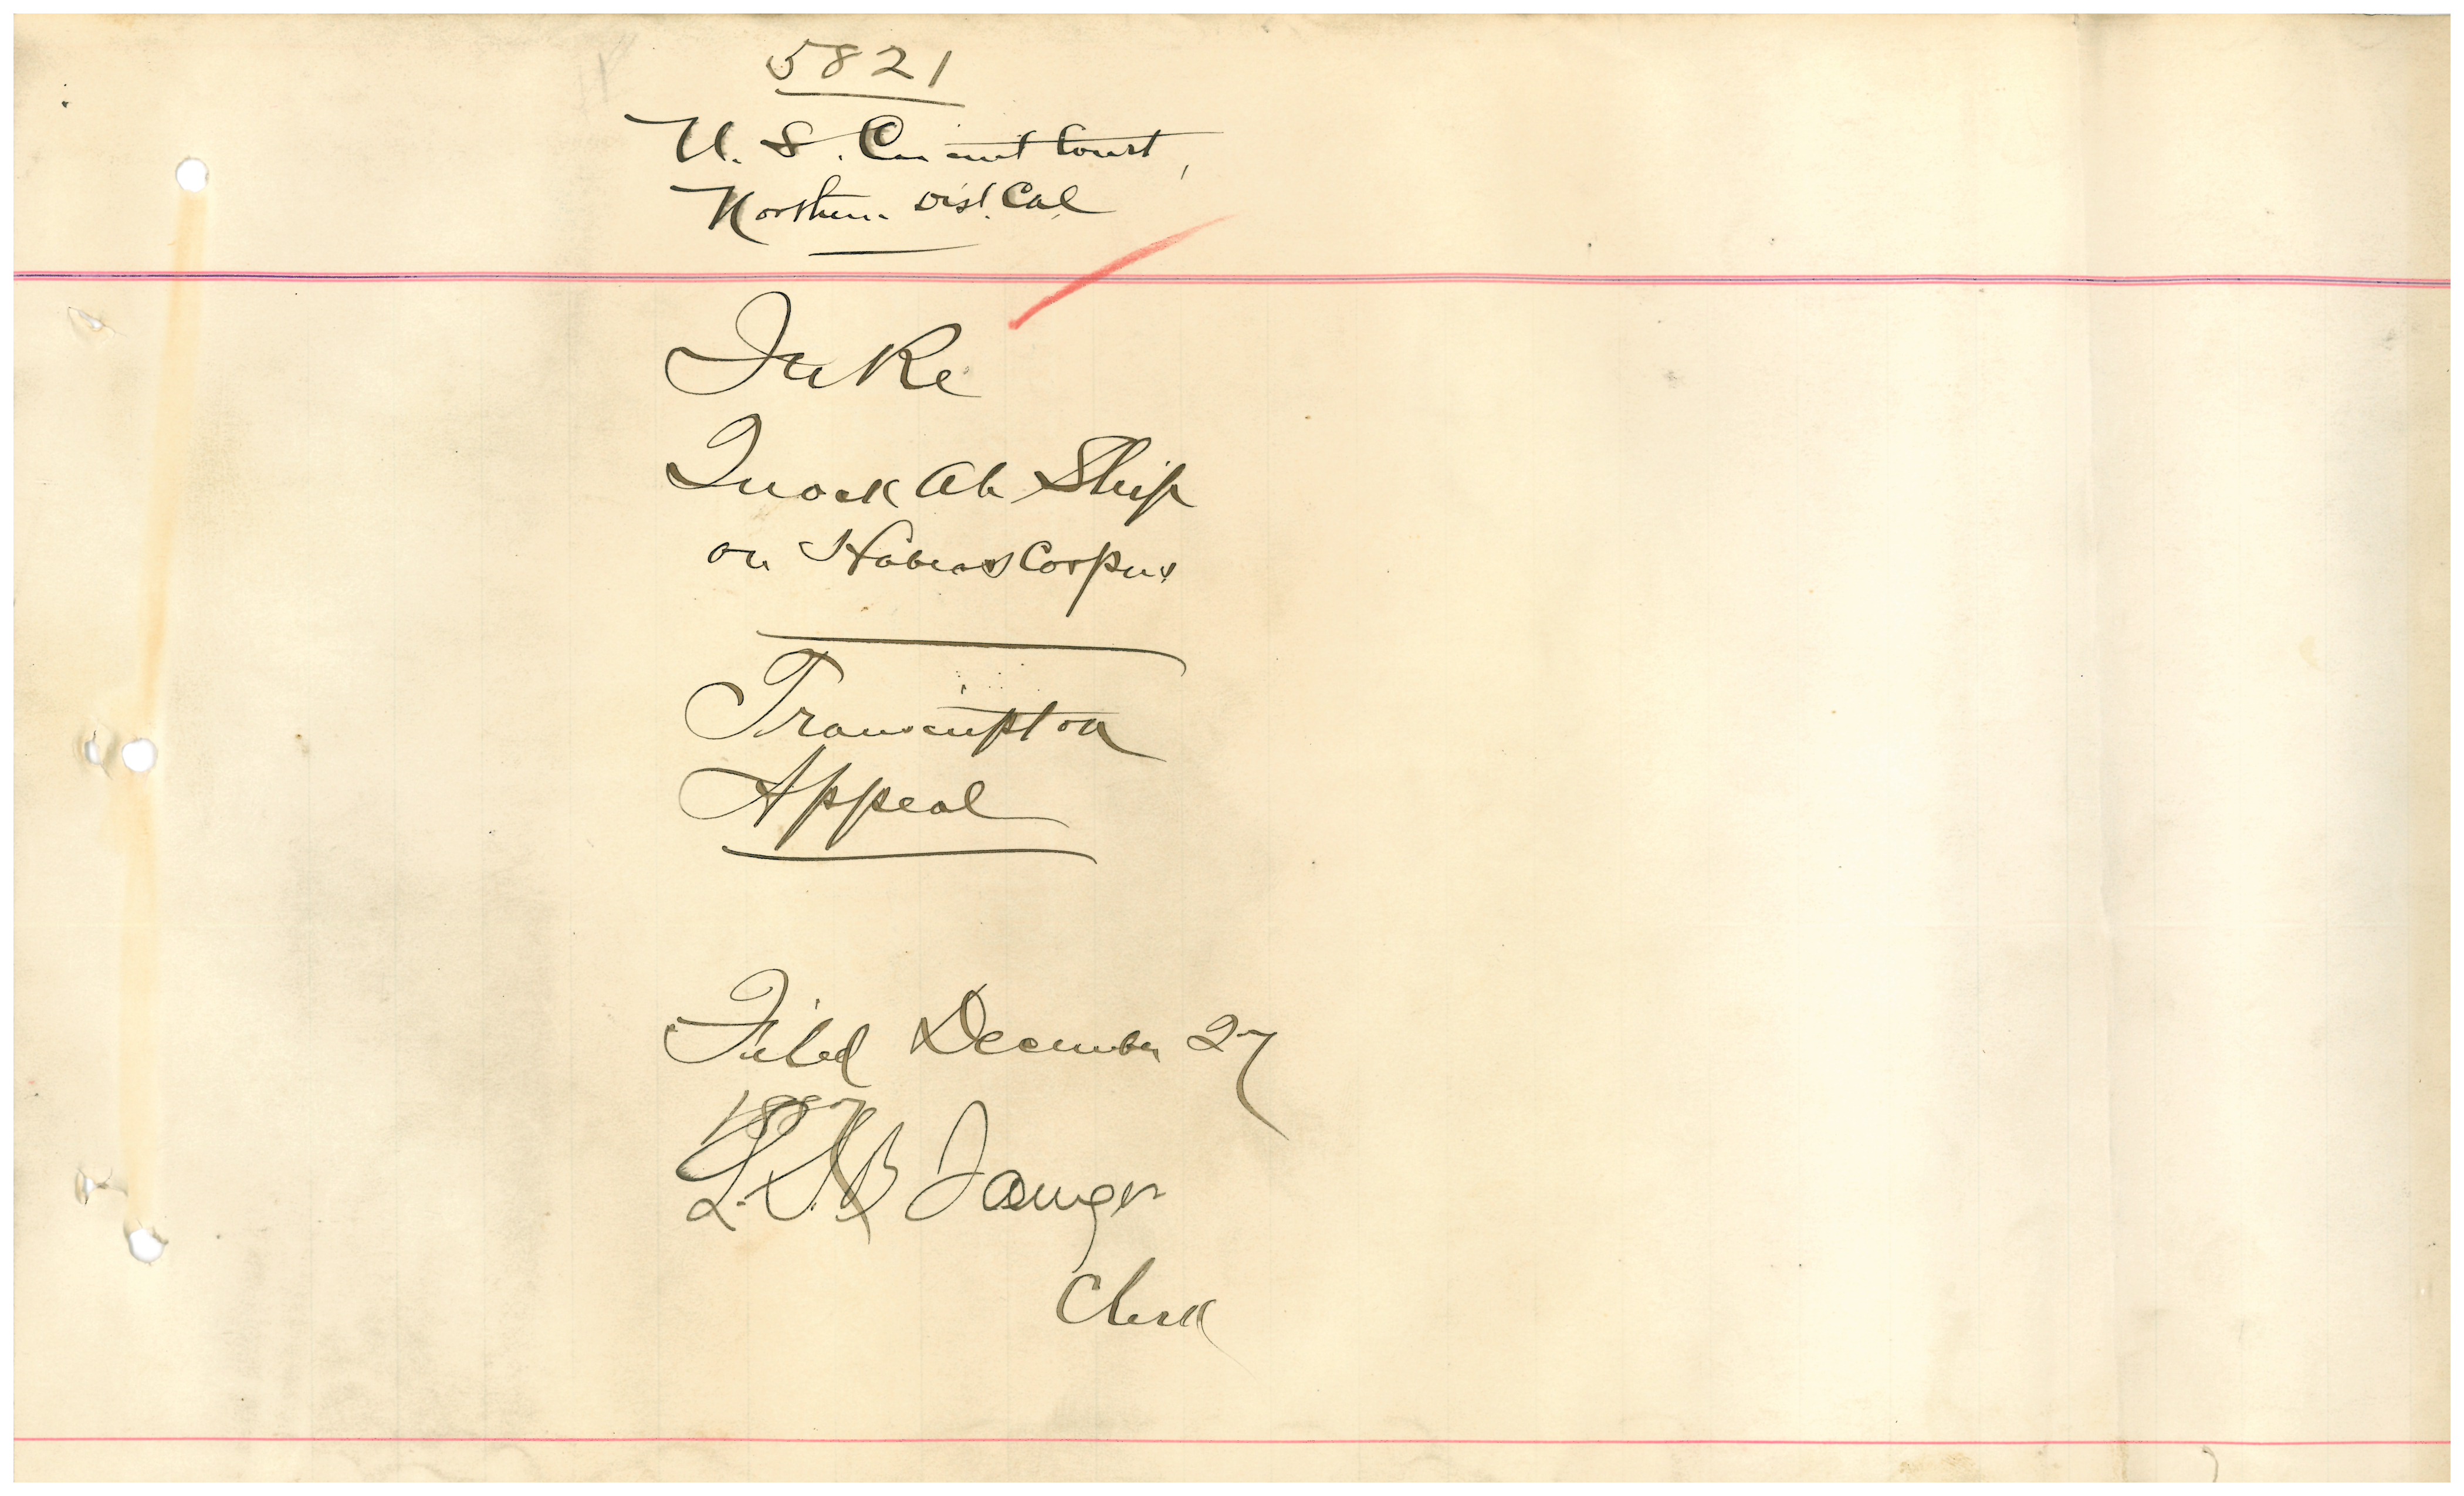 5821
U. S. Circuit Court,
Northern Dist. Cal.
In Re
Quock Ah Ship
on Habeas Corpus
Transcript on
Appeal
Filed December 27
1887
L. S. B. Sawyer
Clerk